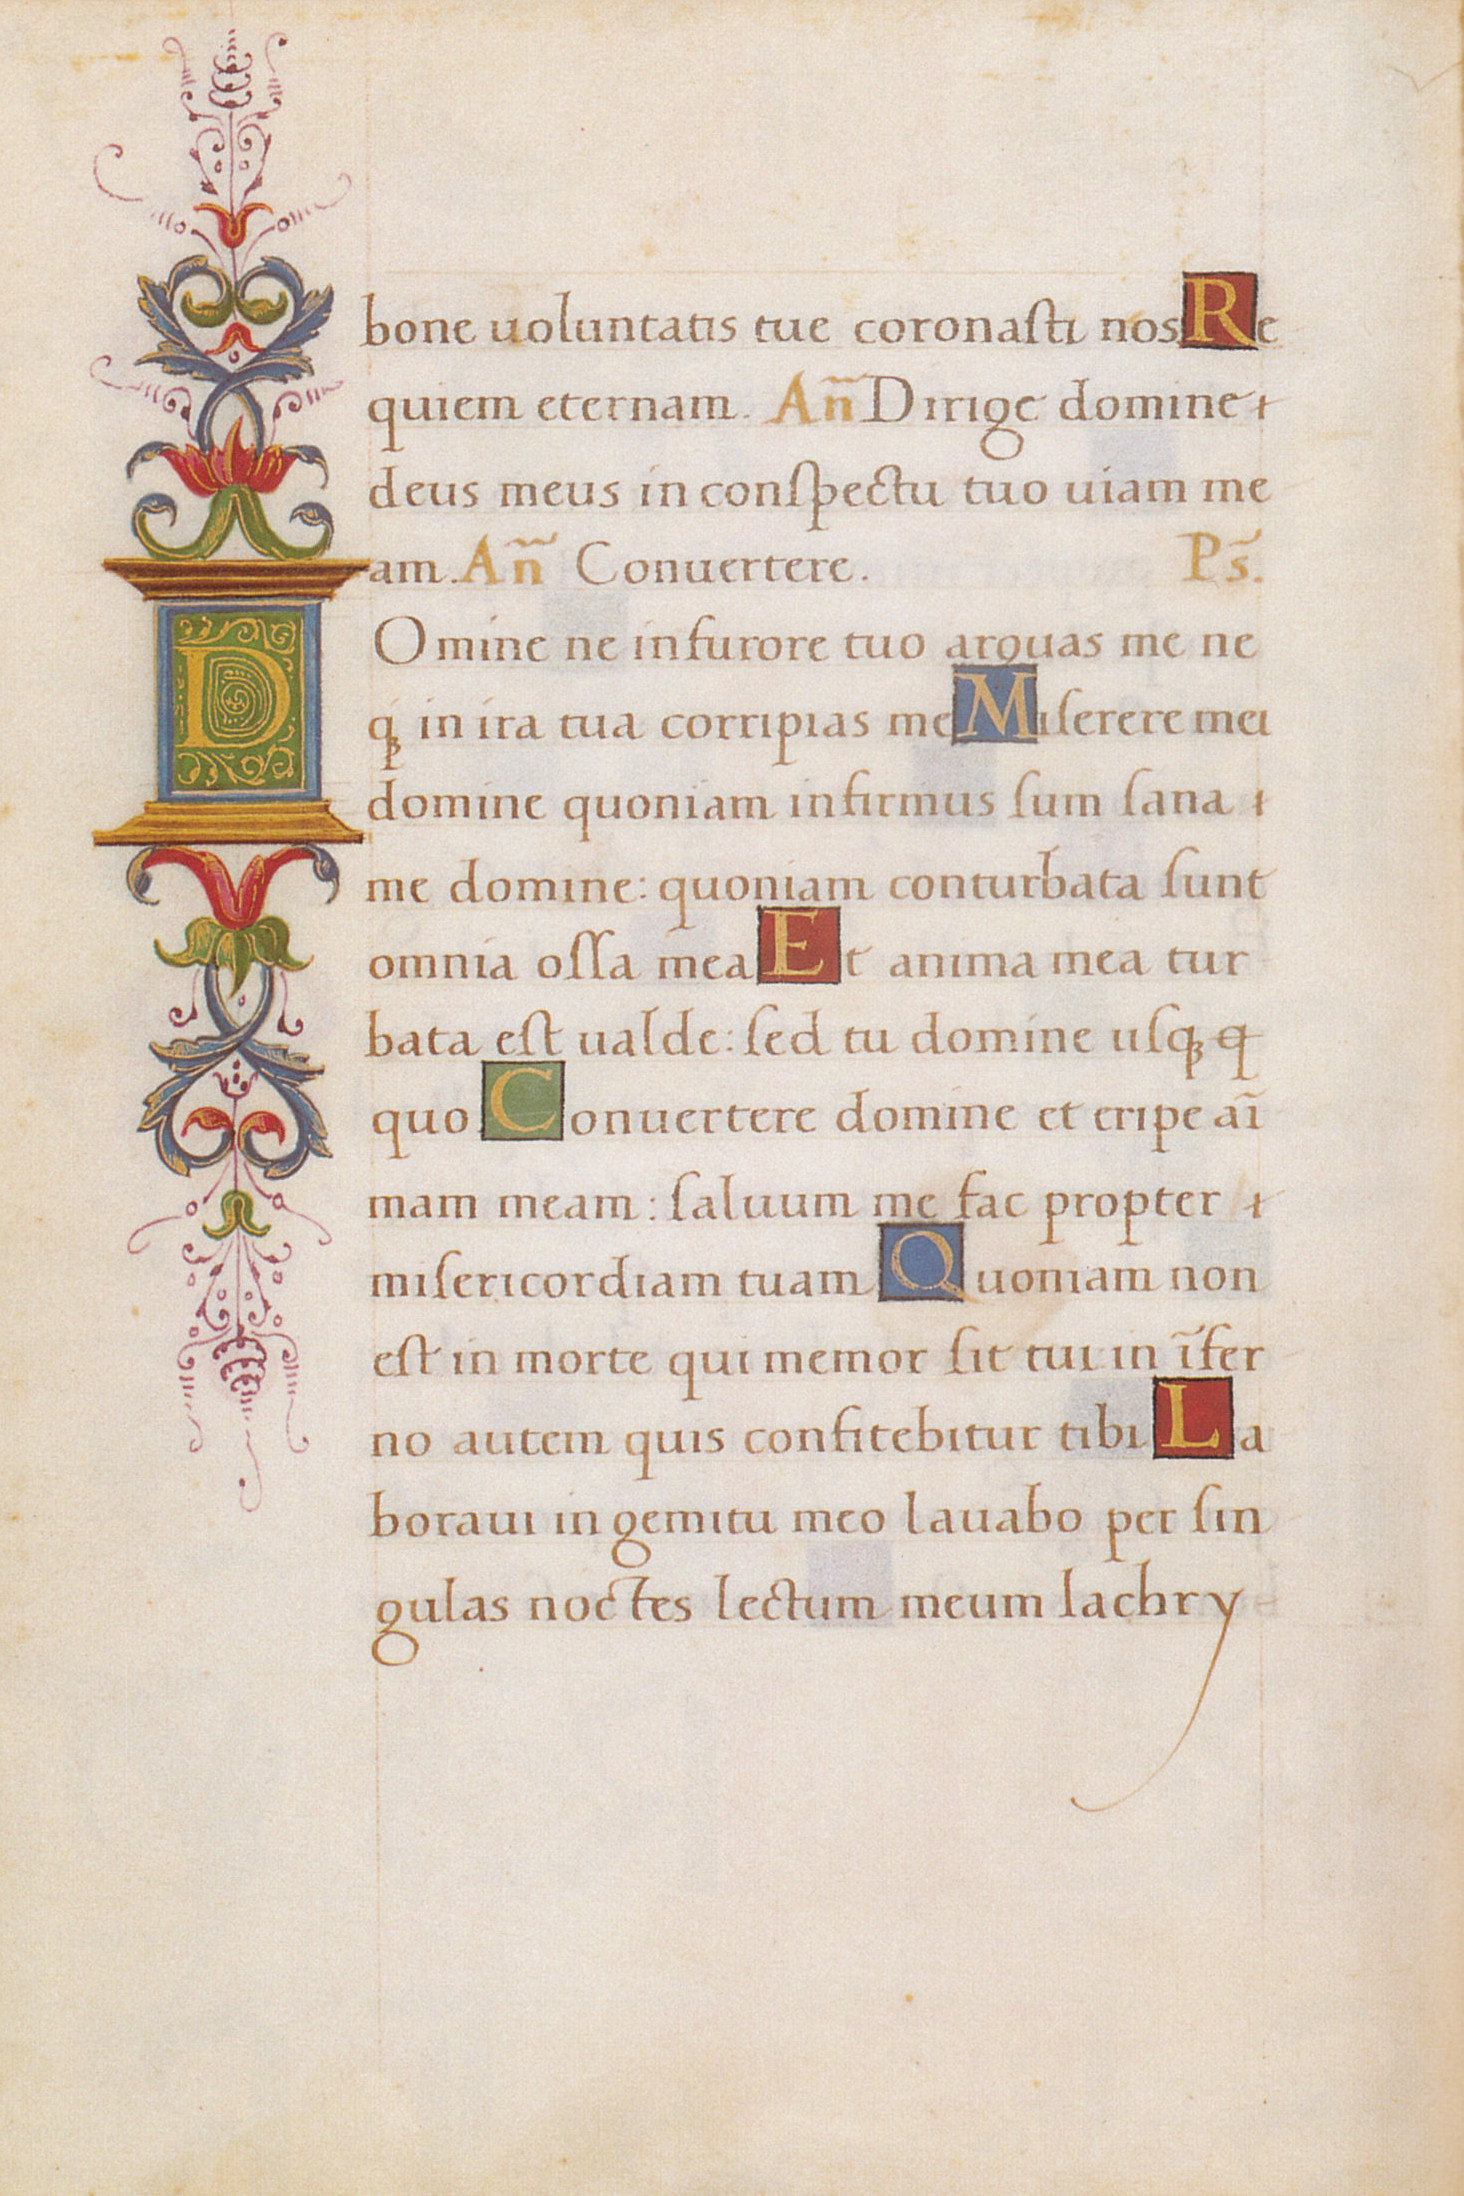 bone uoluntatis tue coronaſti nos Re
quiem eternam. Añ Dirige domine
deus meus in conſpectu tuo uiam me
am. Añ Conuertere. Ps̄.
DOmine ne in furore tuo arguas me ne
qꝫ in ira tua corripias me Miſerere mei
domine quoniam infirmus ſum ſana
me domine: quoniam conturbata ſunt
omnia oſſa mea Et anima mea tur
bata eſt ualde: ſed tu domine uſqꝫ q
quo Conuertere domine et eripe aī
mam meam: ſaluum me fac propter
miſericordiam tuam Quoniam non
eſt in morte qui memor ſit tui in īfer
no autem quis confitebitur tibi La
boraui in gemitu meo lauabo per ſin
gulas noctes lectum meum lachry